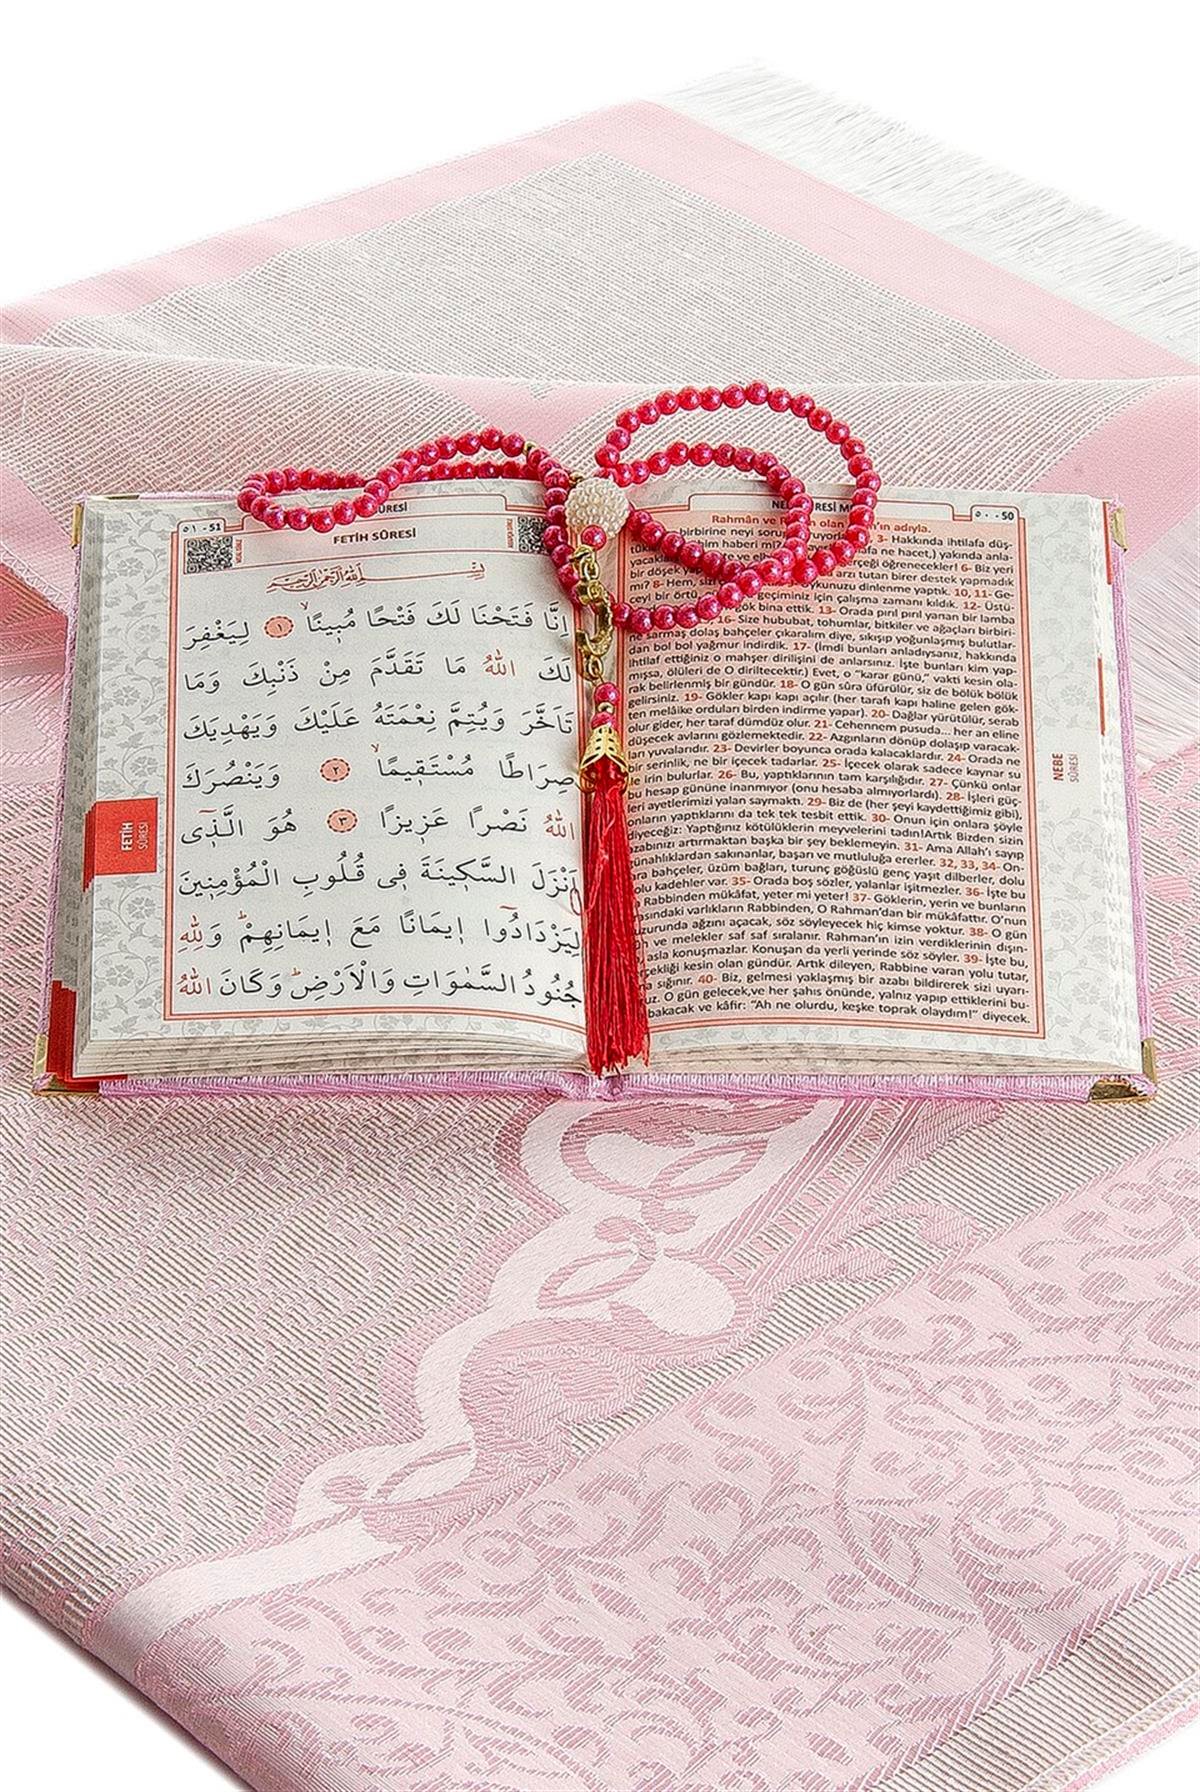 ٥١ - 51
SÛRESİ
FETİH SÛRESİ
بِسْمِ اللّٰهِ الرَّحْمٰنِ الرَّحِيمِ
اِنَّا فَتَحْنَا لَكَ فَتْحًا مُبِينًاۙ ﴿١﴾ لِيَغْفِرَ
لَكَ اللّٰهُ مَا تَقَدَّمَ مِنْ ذَنْبِكَ وَمَا
تَاَخَّرَ وَيُتِمَّ نِعْمَتَهُ عَلَيْكَ وَيَهْدِيَكَ
صِرَاطًا مُسْتَقِيمًاۙ ﴿٢﴾ وَيَنْصُرَكَ
اللّٰهُ نَصْرًا عَزِيزًا ﴿٣﴾ هُوَ الَّذٖٓى
اَنْزَلَ السَّكِينَةَ فٖى قُلُوبِ الْمُؤْمِنٖينَ
لِيَزْدَادُٓوا اٖيمَانًا مَعَ اٖيمَانِهِمْؕ وَلِلّٰهِ
جُنُودُ السَّمٰوَاتِ وَالْاَرْضِؕ وَكَانَ اللّٰهُ
FETİH
SÛRESİ
٥٠ - 50
Rahmân ve olan adıyla.
birbirine neyi 3- Hakkında ihtilafa düş-
haberi mi? ne hacet,) yakında anla-
yacaklar öğrenecekler! 6- Biz yeri
bir döşek arzı tutan birer destek yapmadık
mı? 8- Hem, uykunuzu dinlenme yaptık. 10, 11- Ge-
ceyi bir örtü, geçiminiz için çalışma zamanı kıldık. 12- Üstü-
gök bina ettik. 13- Orada pırıl pırıl yanan bir lamba
16- Size hububat, tohumlar, bitkiler ve ağaçları birbiri-
ne sarmaş dolaş bahçeler çıkaralım diye, sıkışıp yoğunlaşmış bulutlar-
dan bol bol yağmur indirdik. 17- (İmdi bunları anladıysanız, hakkında
ihtilaf ettiğiniz o mahşer dirilişini de anlarsınız. İşte bunları kim yap-
mışsa, ölüleri de O diriltecektir.) Evet, o "karar günü," vakti kesin ola-
rak belirlenmiş bir gündür. 18- O gün sûra üfürülür, siz de bölük bölük
gelirsiniz. 19- Gökler kapı kapı açılır (her tarafı kapı haline gelen gök-
ten melâike orduları birden indirme yapar). 20- Dağlar yürütülür, serab
olur gider, her taraf dümdüz olur. 21- Cehennem pusuda... her an eline
düşecek avlarını gözlemektedir. 22- Azgınların dönüp dolaşıp varacak-
ları yuvalarıdır. 23- Devirler boyunca orada kalacaklardır. 24- Orada ne
bir serinlik, ne bir içecek tadarlar. 25- İçecek olarak sadece kaynar su
ile irin bulurlar. 26- Bu, yaptıklarının tam karşılığıdır. 27- Çünkü onlar
bu hesap gününe inanmıyor (onu hesaba almıyorlardı). 28- İşleri güç-
leri ayetlerimizi yalan saymaktı. 29- Biz de (her şeyi kaydettiğimiz gibi),
onların yaptıklarını da tek tek tesbit ettik. 30- Onun için onlara şöyle
diyeceğiz: Yaptığınız kötülüklerin meyvelerini tadın!Artık Bizden sizin
azabınızı artırmaktan başka bir şey beklemeyin. 31- Ama Allah'ı sayıp
günahlıklardan sakınanlar, başarı ve mutluluğa ererler. 32, 33, 34- On-
lara bahçeler, üzüm bağları, turunç göğüslü genç yaşıt dilberler, dolu
dolu kadehler var. 35- Orada boş sözler, yalanlar işitmezler. 36- İşte bu
Rabbinden mükâfat, yeter mi yeter! 37- Göklerin, yerin ve bunların
arasındaki varlıkların Rabbinden, O Rahman'dan bir mükâfattır. O'nun
huzurunda ağzını açacak, söz söyleyecek hiç kimse yoktur. 38- O gün
ve melekler saf saf sıralanır. Rahman'ın izin verdiklerinin dışın-
asla konuşmazlar. Konuşan da yerli yerinde söz söyler. 39- İşte bu,
gerçekliği kesin olan gündür. Artık dileyen, Rabbine varan yolu tutar,
sığınır. 40- Biz, gelmesi yaklaşmış bir azabı bildirerek sizi uyarı-
O gün gelecek,ve her şahıs önünde, yalnız yapıp ettiklerini bu-
bakacak ve kâfir: "Ah ne olurdu, keşke toprak olaydım!" diyecek.
NEBE
SÛRESİ